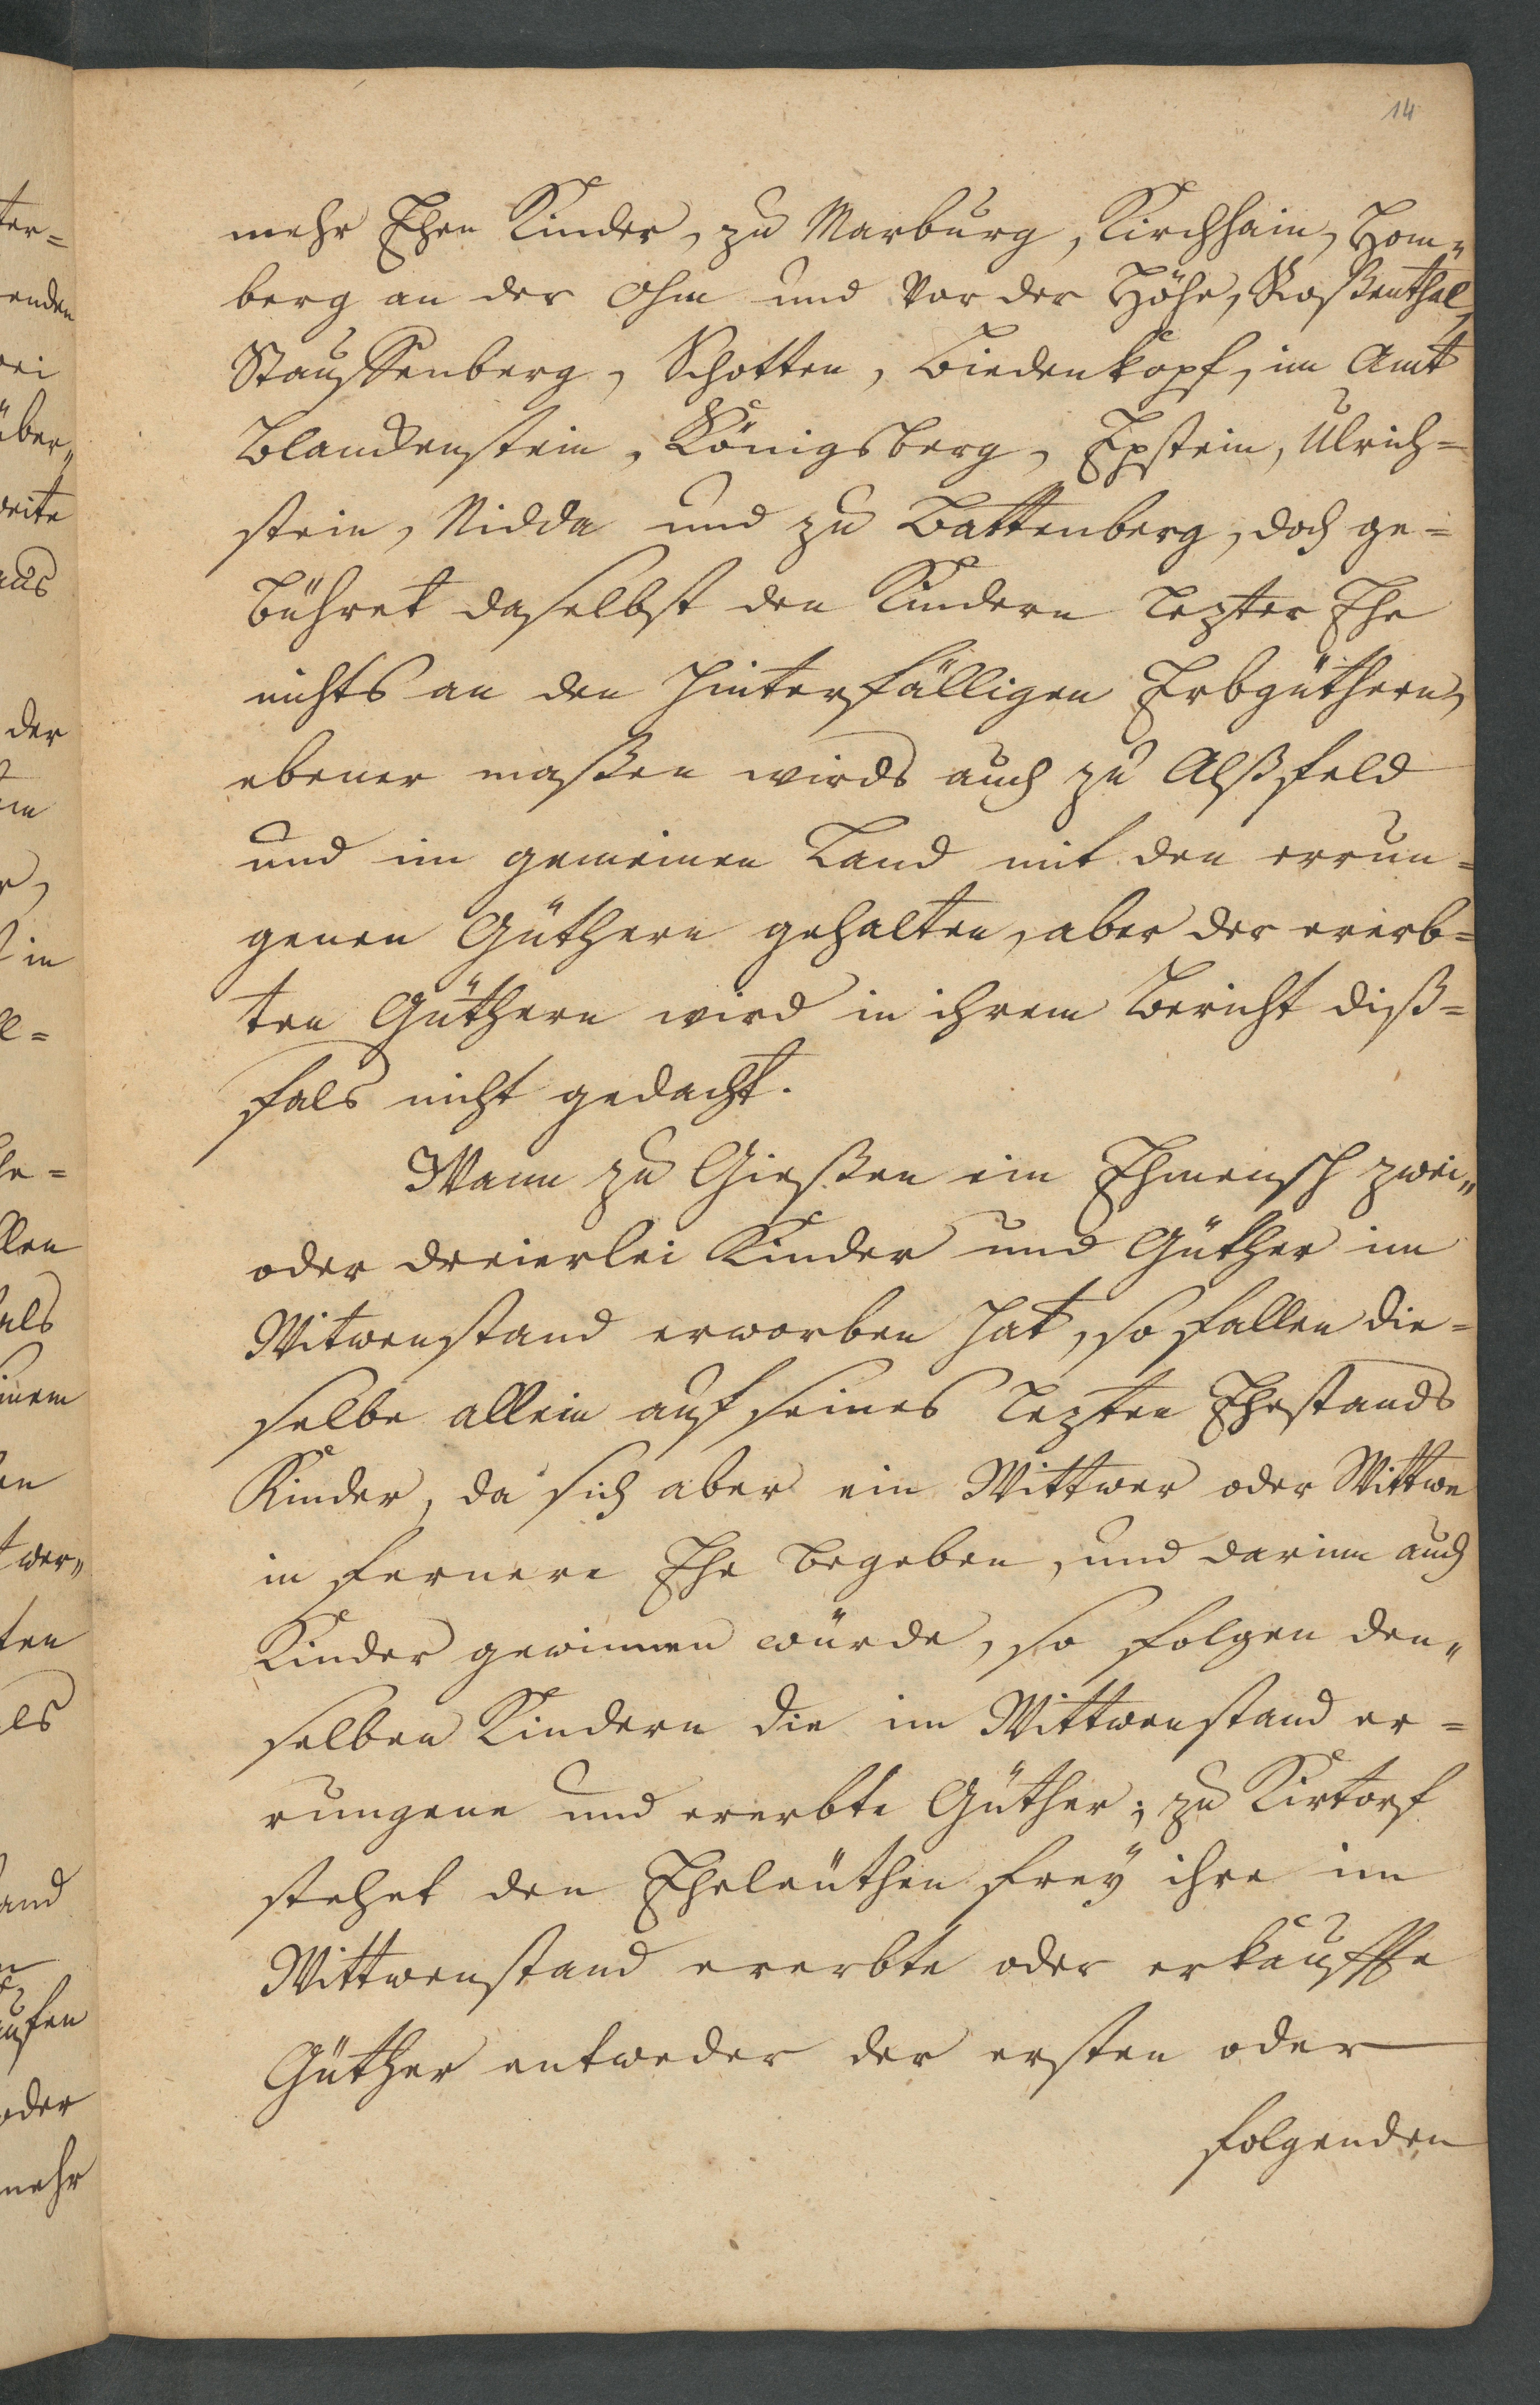 14
mehr Ehen Kinder, zu Marburg, Kirchhain, Hom„
berg an der Ohm und vor der Höhe, Roßenthal,
Stauffenberg, Schotten, Biedenkopf, im Amt
Blanckenstein, Königsberg, Epstein, Ulrich=
stein, Nidda und zu Battenberg, doch ge=
bühret daselbst den Kindern lezter Ehe
nichts an den hinterfälligen Erbgüthern,
ebener maßen wirds auch zu Alßfeld
und im gemeinen Land mit den errun=
genen Güthern gehalten, aber der ererb=
ten Güthern wird in ihrem Bericht diß=
fals nicht gedacht.
Wann zu Gießen ein Ehmensch zwei„
oder dreierlei Kinder und Güther im
Witwenstand erworben hat, so fallen die=
selbe allein auf seines lezten Ehestands
Kinder, da sich aber ein Wittwer oder Wittwe
in fernere Ehe begeben, und darinn auch
Kinder gewinnen würde, so folgen den„
selben Kindern die im Wittwenstand er=
rungene und ererbte Güther; zu Kirtorf
stehet den Eheleüthen freÿ ihre im
Wittwenstand ererbte oder erkauffte
Güther entweder der ersten oder
folgenden